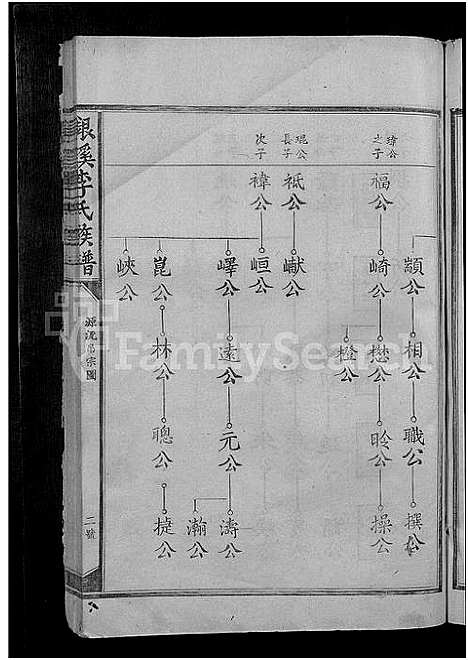 緯公之子
福公
顓公
相公
職公
撰公
崎公
懋公
昤公
操公
橙公
琨公長子
祇公
巘公
次子
褘公
峘公
嶧公
遠公
元公
濤公
瀚公
崑公
林公
聰公
捷公
峽公
銀溪李氏族譜
源流吊宗圖
二號
FamilySearch